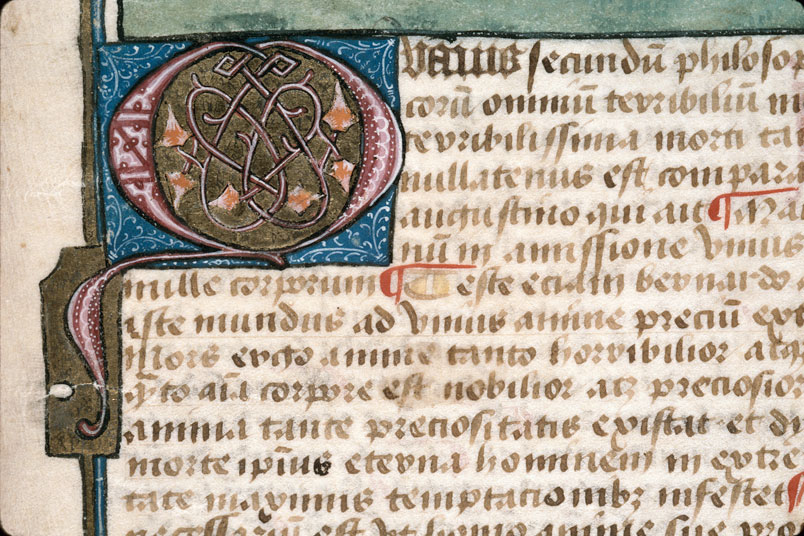 QVamuis secundū philosop
corū omniū terribiliū m
terribilissima morti ta
nullatenus est compara
augustino qui ait ¶ Ma
nū in amissione vnius
mille corporum ¶ Teste eciam bernardo
iste mundus ad vnius anime preciū ext
Mors ergo anime tanto horribilior atq
q̄to aīa corpore est nobilior atq preciosior
anima tante preciositatis existat et di
morte ipīus eterna hominem in extre
tate maximis temptacionibꝫ infestet ¶
necessariū est vt homo anime sue pro